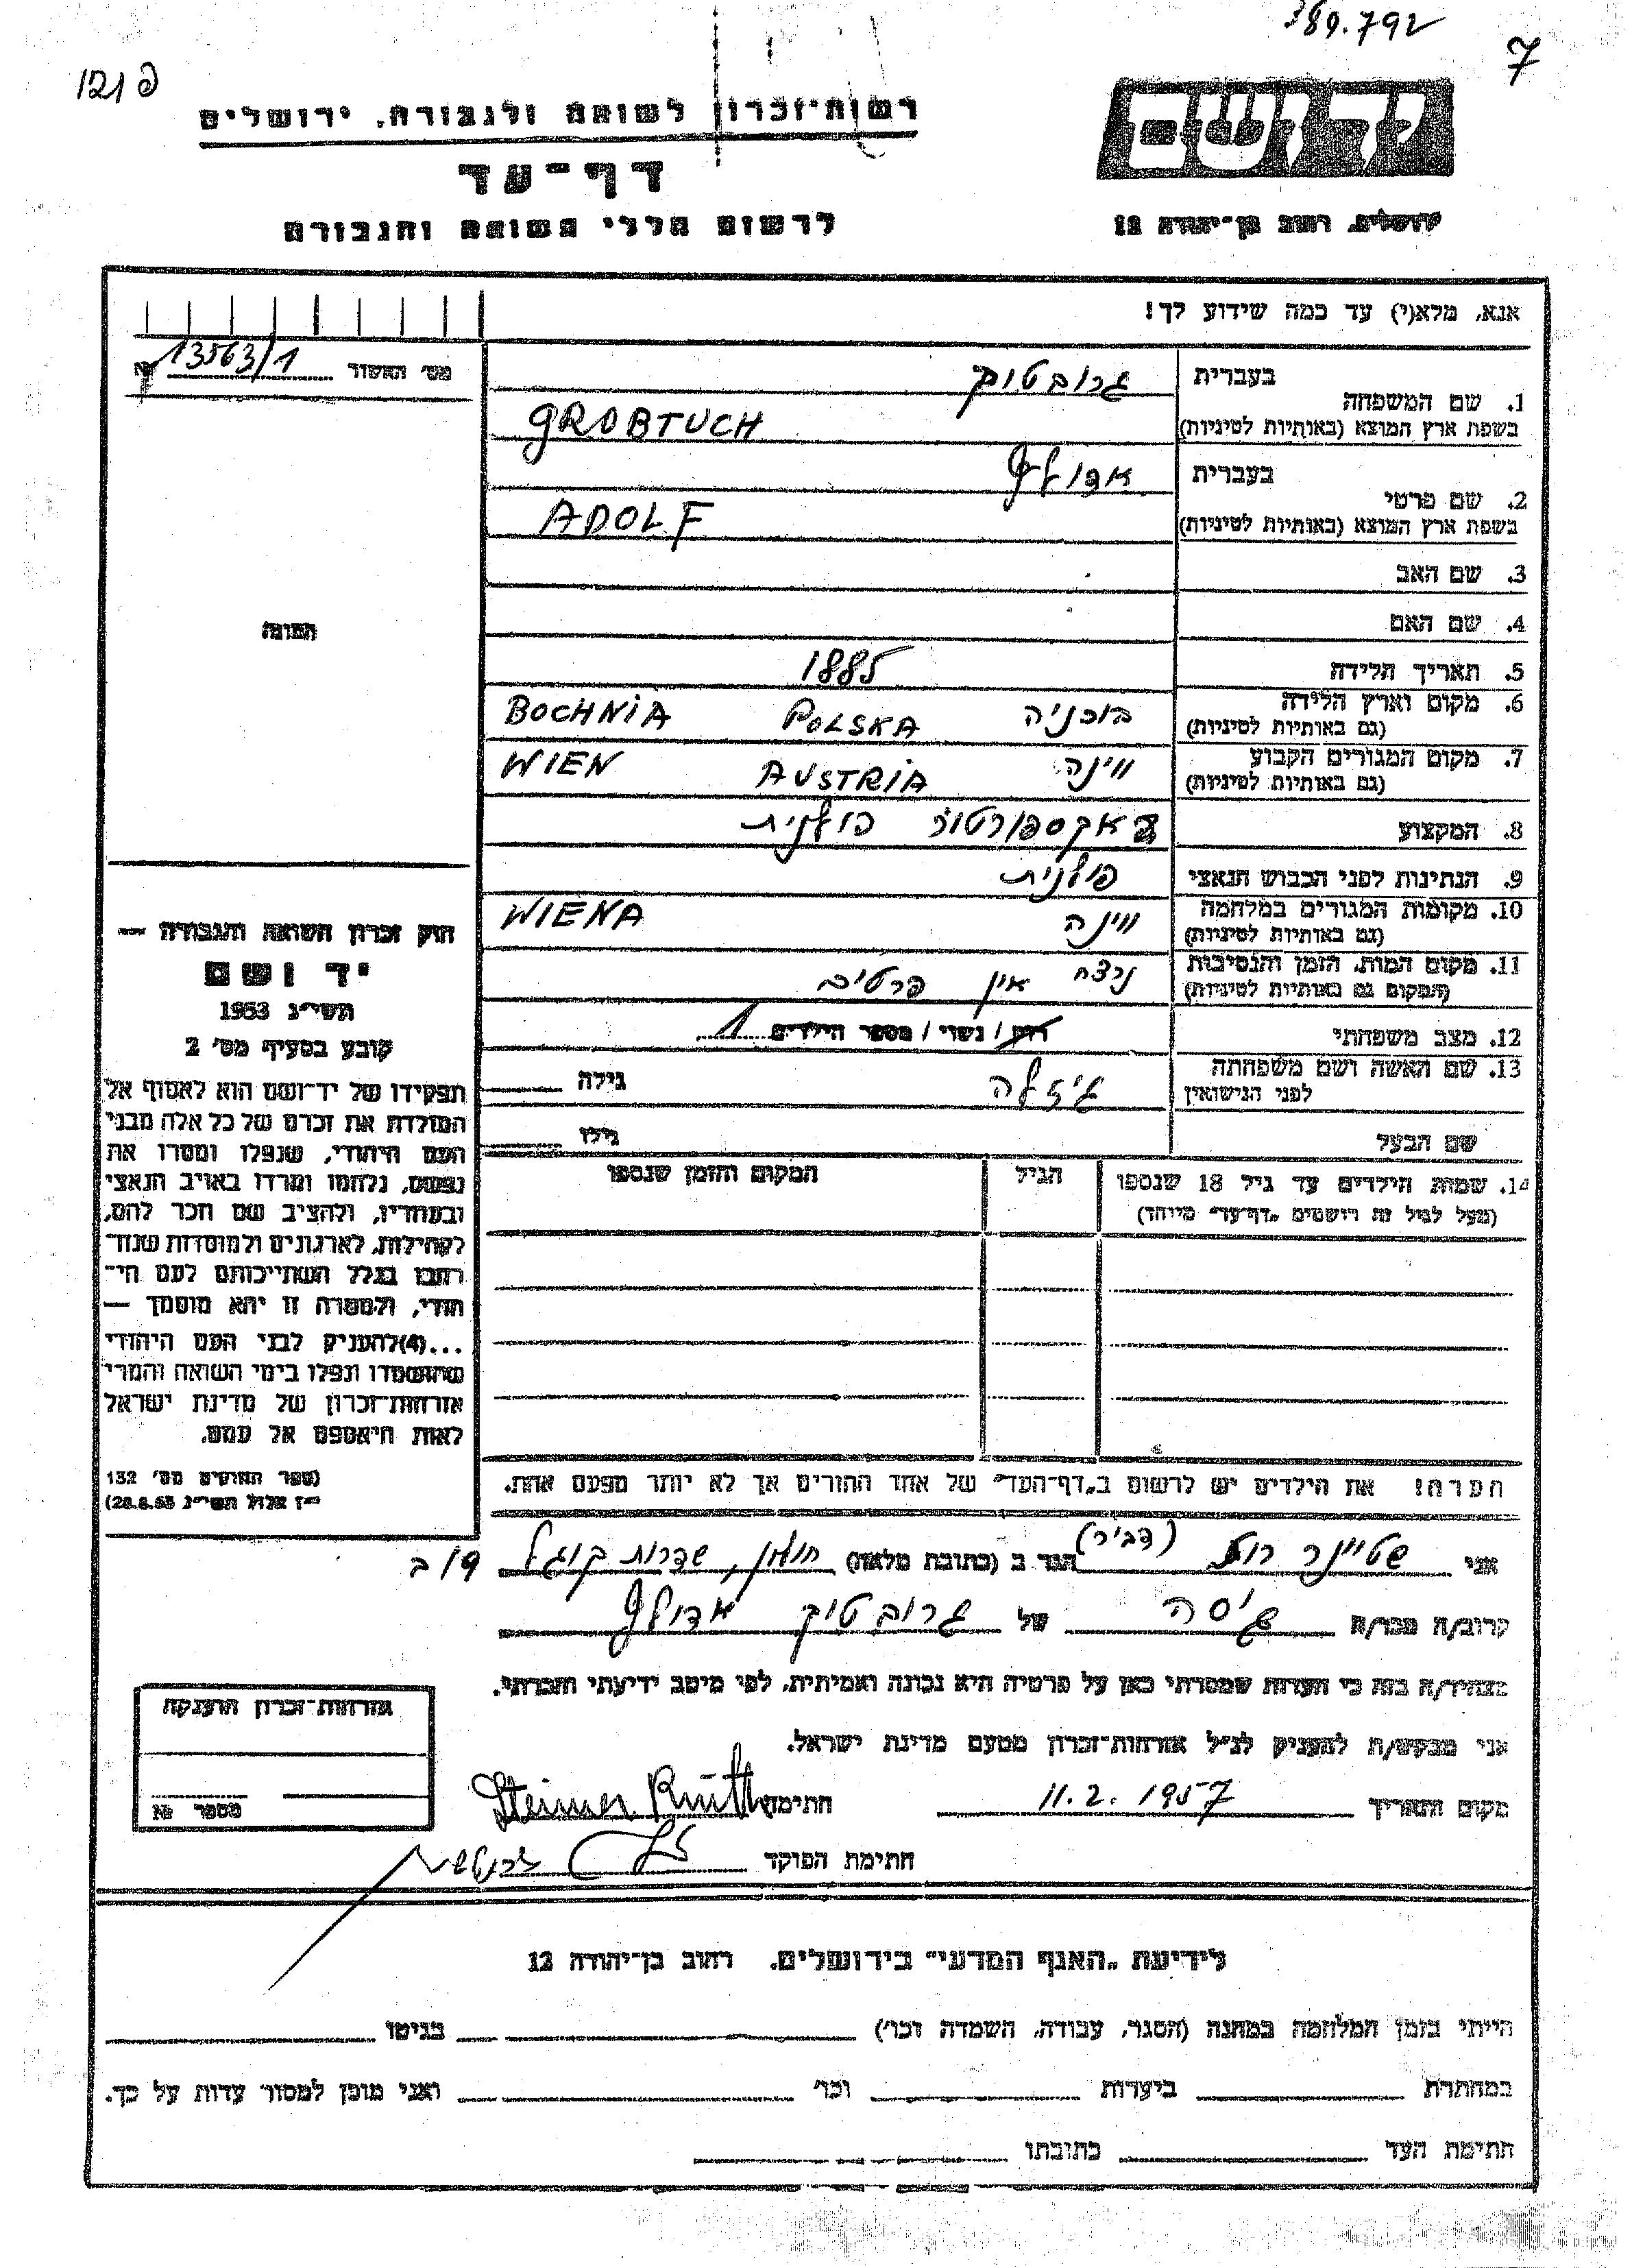 389.792
7
פ 121
רשות־זכרון לשואה ולגבורה, ירושלים
דף־עד
לרשום חללי השואה והגבורה
יד ושם
ירושלים, רחוב בן־יהודה 12
אנא, מלא(י) עד כמה שידוע לך!
מס׳ האשור № 13563/1
בעברית גרובטוך
1. שם המשפחה
בשפת ארץ המוצא (באותיות לטיניות) GROBTUCH
בעברית אדולף
2. שם פרטי
בשפת ארץ המוצא (באותיות לטיניות) ADOLF
3. שם האב
4. שם האם
תמונה
5. תאריך הלידה 1885
6. מקום וארץ הלידה בוכניה POLSKA BOCHNIA
(גם באותיות לטיניות)
7. מקום המגורים הקבוע ווינה AUSTRIA WIEN
(גם באותיות לטיניות)
8. המקצוע
9. הנתינות לפני הכבוש הנאצי פולנית
10. מקומות המגורים במלחמה ווינה WIENA
(גם באותיות לטיניות)
11. מקום המות, הזמן והנסיבות נרצח אין פרטים
(המקום גם באותיות לטיניות)
12. מצב משפחתי רוק / נשוי / מספר הילדים 1
13. שם האשה ושם משפחתה גיזלה גילה
לפני הנישואין
שם הבעל גילו
14. שמות הילדים עד גיל 18 שנספו הגיל המקום והזמן שנספו
(מעל לגיל זה רושמים „דף־עד״ מיוחד)
חוק זכרון השואה והגבורה —
יד ושם
תשי״ג 1953
קובע בסעיף מס׳ 2
תפקידו של יד־ושם הוא לאסוף אל
המולדת את זכרם של כל אלה מבני
העם היהודי, שנפלו ומסרו את
נפשם, נלחמו ומרדו באויב הנאצי
ובעוזריו, ולהציב שם וזכר להם,
לקהילות, לארגונים ולמוסדות שנח־
רבו בגלל השתייכותם לעם הי־
הודי, ולמטרה זו יהא מוסמך —
...(4) להעניק לבני העם היהודי
שהושמדו ונפלו בימי השואה והמרי
אזרחות־זכרון של מדינת ישראל
לאות היאספם אל עמם.
(ספר החוקים מס׳ 132
י״ז אלול תשי״ג 28.8.53)
הערה! את הילדים יש לרשום ב„דף־העד״ של אחד ההורים אך לא יותר מפעם אחת.
אני שטיינר רות (דביר) הגר ב (כתובת מלאה) חולון, שדרות קוגל 19 ב
קרוב/ה מכר/ה גיסה של גרובטוך אדולף
מצהיר/ה בזה כי העדות שמסרתי כאן על פרטיה היא נכונה ואמיתית, לפי מיטב ידיעתי והכרתי.
אני מבקש/ת להעניק לנ״ל אזרחות־זכרון מטעם מדינת ישראל.
מקום ותאריך 11.2.1957 חתימה Steiner Ruth
חתימת הפוקד
אזרחות־זכרון הוענקה
מספר №
לידיעת „האגף המדעי״ בירושלים. רחוב בן־יהודה 12
הייתי בזמן המלחמה במחנה (הסגר, עבודה, השמדה וכו׳) בגיטו
במחתרת ביערות וכו׳ ואני מוכן למסור עדות על כך.
חתימת העד כתובתו